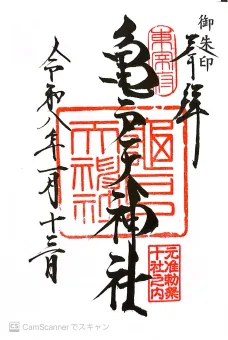 御朱印
奉拝
東宰府
亀戸天神社
元准勅祭
十社之内
令和八年一月十三日
CamScannerでスキャン